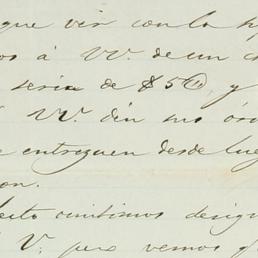 que ver con la
os á VV. de un
seria de $5 00, y
VV. din sus ór
e entreguen desde lue
on.
omitimos desig
V. pero vemos q